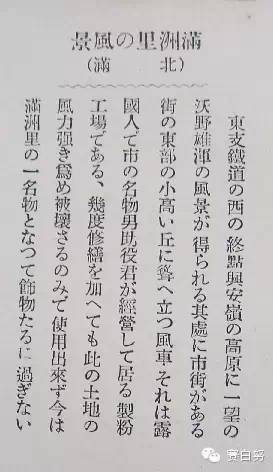 滿洲里の風景
(北滿)
東支鐵道の西の終點興安嶺の高原に一望の
沃野雄渾の風景が得られる其處に市街がある
街の東部の小高い丘に聳へ立つ風車・それは露
國人で市の名物男助役君が經營して居る製粉
工場である、幾度修繕を加へても此の土地の
風力强き爲め被壞さるのみで使用出來ず今は
滿洲里の一名物となつて飾物たるに過ぎない
赛白努